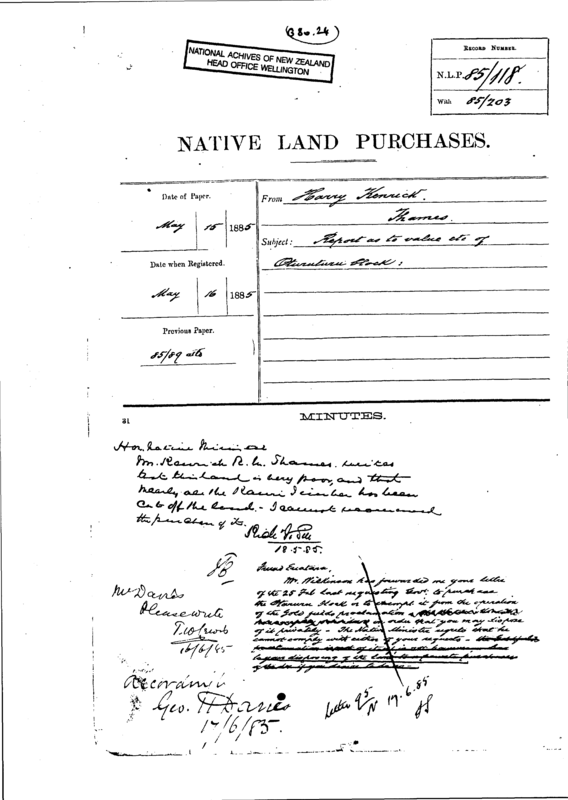 (G 80.24)
NATIONAL ACHIVES OF NEW ZEALAND
HEAD OFFICE WELLINGTON
RECORD NUMBER.
N.L.P. 85/118.
With 85/203
NATIVE LAND PURCHASES.
Date of Paper.
May 15 1885
Date when Registered.
May 16 1885
Previous Paper.
85/89 atts
From Harry Kenrick.
Thames.
Subject: Report as to value etc of
Block:
MINUTES.
Hon. Native Minister
Mr. Kenrick R.M. Thames writes
that this land is very poor, and that
nearly all the Kauri Timber has been
cut off the land. - I cannot recommend
the purchase of it.
18.5.85.
Mr Davies
Please write
T.W. Lewis
16/6/85
Friend
Mr. Wilkinson has forwarded me your letter
of the 25 Feb last requesting Govt. to purchase
the Block or to exempt it from the operation
of the Gold fields proclamation
in order that you may dispose
of it privately - The Native Minister regrets that he
cannot comply with either of your requests -
Accordingly
Geo. H Davies
17/6/85.
Letter 95/N 17.6.85